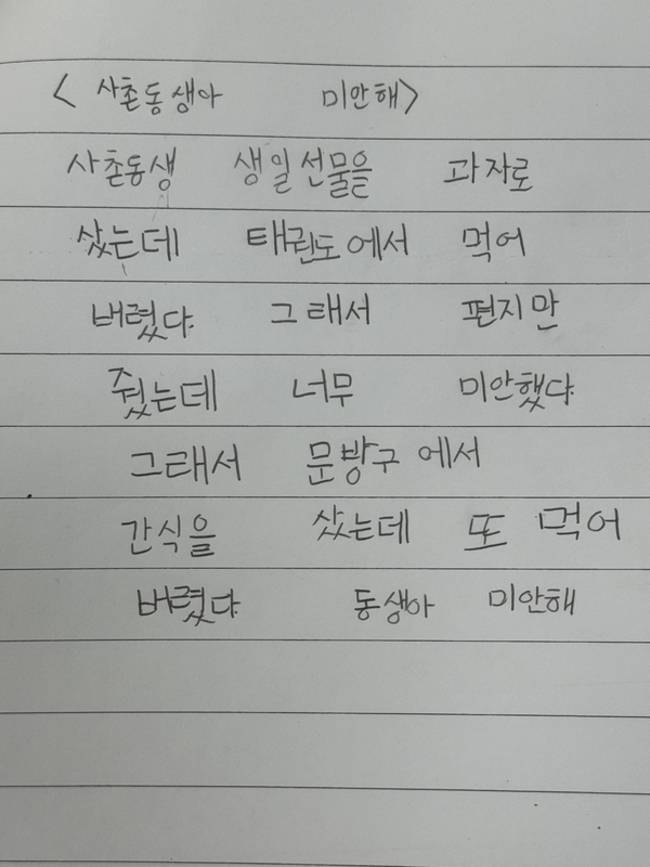 <사촌동생아 미안해>
사촌동생 생일선물을 과자로
샀는데 태권도에서 먹어
버렸다. 그래서 편지만
줬는데 너무 미안했다.
그래서 문방구에서
간식을 샀는데 또 먹어
버렸다. 동생아 미안해